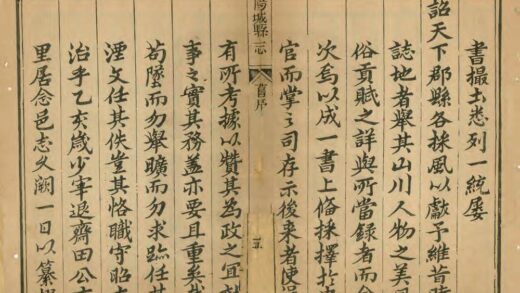 書撮土悉列一統屡
詔天下郡縣各採風以獻予維昔
誌地者舉其山川人物之美
俗貢賦之詳與所當録者而
次焉以成一書上俻採擇於
官而掌之司存示後来者使
陽城縣志
舊序
五
有所考據以贊其為政之宜
事之實其務盖亦要且重矣
苟墜而勿舉曠而勿求臨任其
湮文任其佚豈其恪職守昭
治乎乙亥歲少宰退齋田公
里居念邑志久闕一日以纂